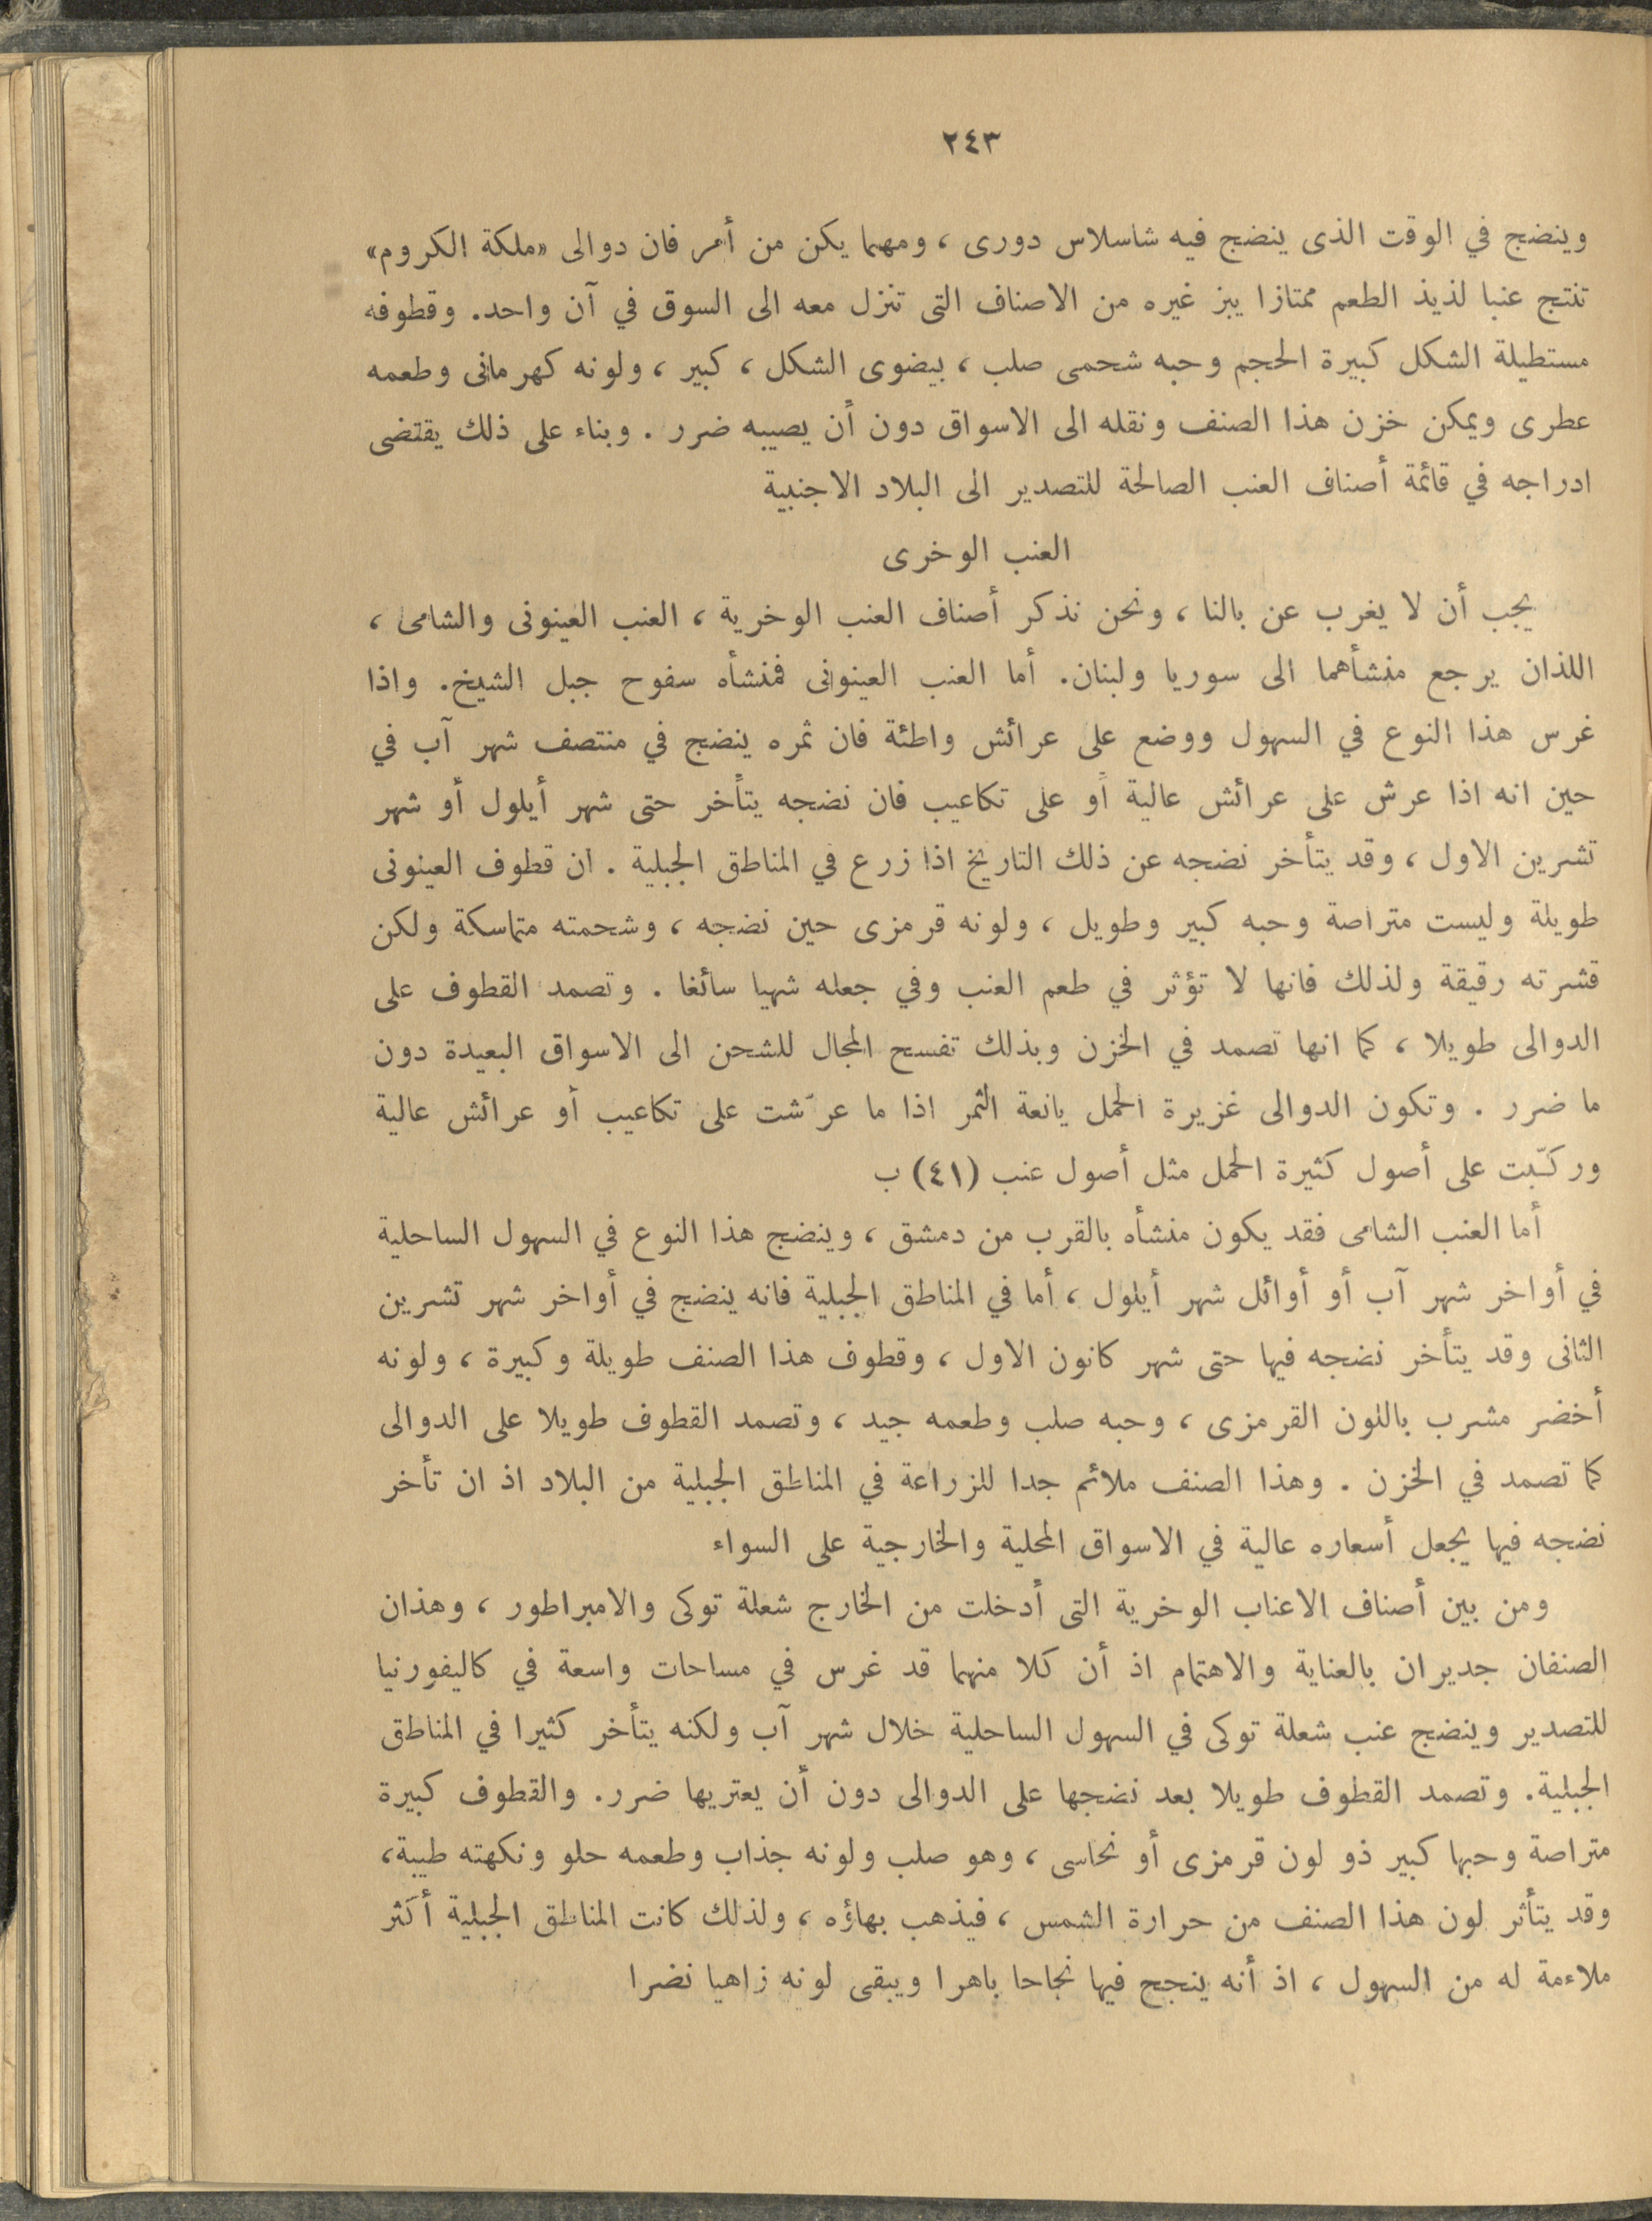 ٢٤٣
وينضج في الوقت الذى ينضج فيه شاسلاس دورى ، ومهما يكن من أمر فان دوالى «ملكة الكروم»
تنتج عنبا لذيذ الطعم ممتازا يبز غيره من الاصناف التى تنزل معه الى السوق في آن واحد. وقطوفه
مستطيلة الشكل كبيرة الحجم وحبه شحمى صلب ، بيضوى الشكل ، كبير ، ولونه كهرمانى وطعمه
عطرى ويمكن خزن هذا الصنف ونقله الى الاسواق دون أن يصيبه ضرر . وبناء على ذلك يقتضى
ادراجه في قائمة أصناف العنب الصالحة للتصدير الى البلاد الاجنبية
العنب الوخرى
يجب أن لا يغرب عن بالنا ، ونحن نذكر أصناف العنب الوخرية ، العنب العينونى والشامى ،
اللذان يرجع منشأهما الى سوريا ولبنان. أما العنب العينونى فمنشأه سفوح جبل الشيخ. واذا
غرس هذا النوع في السهول ووضع على عرائش واطئة فان ثمره ينضج في منتصف شهر آب في
حين انه اذا عرش على عرائش عالية أو على تكاعيب فان نضجه يتأخر حتى شهر أيلول أو شهر
تشرين الاول ، وقد يتأخر نضجه عن ذلك التاريخ اذا زرع في المناطق الجبلية . ان قطوف العينونى
طويلة وليست متراصة وحبه كبير وطويل ، ولونه قرمزى حين نضجه ، وشحمته متماسكة ولكن
قشرته رقيقة ولذلك فانها لا تؤثر في طعم العنب وفي جعله شهيا سائغا . وتصمد القطوف على
الدوالى طويلا ، كما انها تصمد في الخزن وبذلك تفسح المجال للشحن الى الاسواق البعيدة دون
ما ضرر . وتكون الدوالى غزيرة الحمل يانعة الثمر اذا ما عرّشت على تكاعيب أو عرائش عالية
وركّبت على أصول كثيرة الحمل مثل أصول عنب (٤١) ب
أما العنب الشامى فقد يكون منشأه بالقرب من دمشق ، وينضج هذا النوع في السهول الساحلية
في أواخر شهر آب أو أوائل شهر أيلول ، أما في المناطق الجبلية فانه ينضج في أواخر شهر تشرين
الثانى وقد يتأخر نضجه فيها حتى شهر كانون الاول ، وقطوف هذا الصنف طويلة وكبيرة ، ولونه
أخضر مشرب باللون القرمزى ، وحبه صلب وطعمه جيد ، وتصمد القطوف طويلا على الدوالى
كما تصمد في الخزن . وهذا الصنف ملائم جدا للزراعة في المناطق الجبلية من البلاد اذ ان تأخر
نضجه فيها يجعل أسعاره عالية في الاسواق المحلية والخارجية على السواء
ومن بين أصناف الاعناب الوخرية التى أدخلت من الخارج شعلة توكى والامبراطور ، وهذان
الصنفان جديران بالعناية والاهتمام اذ أن كلا منهما قد غرس في مساحات واسعة في كاليفورنيا
للتصدير وينضج عنب شعلة توكى في السهول الساحلية خلال شهر آب ولكنه يتأخر كثيرا في المناطق
الجبلية. وتصمد القطوف طويلا بعد نضجها على الدوالى دون أن يعتريها ضرر. والقطوف كبيرة
متراصة وحبها كبير ذو لون قرمزى أو نحاسى ، وهو صلب ولونه جذاب وطعمه حلو ونكهته طيبة،
وقد يتأثر لون هذا الصنف من حرارة الشمس ، فيذهب بهاؤه ، ولذلك كانت المناطق الجبلية أكثر
ملاءمة له من السهول ، اذ أنه ينجح فيها نجاحا باهرا ويبقى لونه زاهيا نضرا